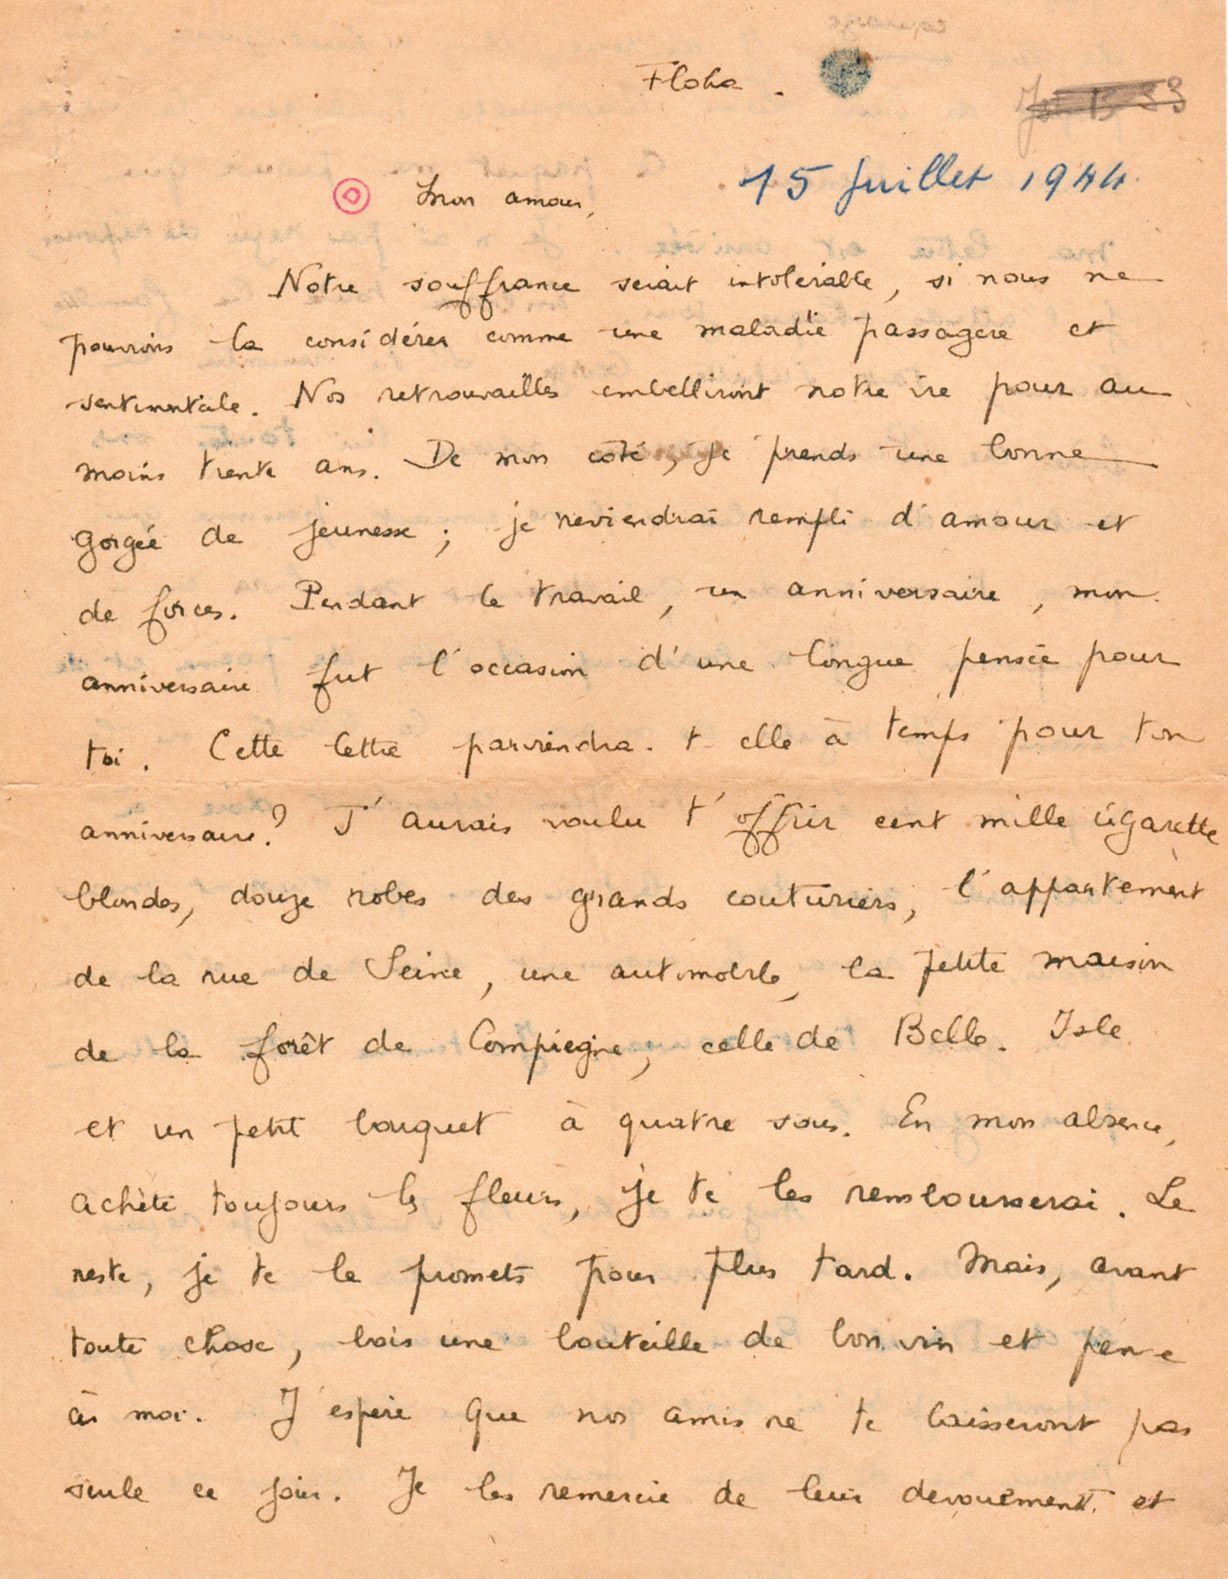 Floha.
15 Juillet 1944
Mon amour,
Notre souffrance serait intolérable, si nous ne
pouvions la considérer comme une maladie passagère et
sentimentale. Nos retrouvailles embelliront notre vie pour au
moins trente ans. De mon coté, je prends une bonne
gorgée de jeunesse ; je reviendrai rempli d'amour et
de forces. Pendant le travail, un anniversaire, mon
anniversaire fut l'occasion d'une longue pensée pour
toi. Cette lettre parviendra-t-elle à temps pour ton
anniversaire ? J'aurais voulu t'offrir cent mille cigarette
blondes, douze robes des grands couturiers, l'appartement
de la rue de Seine, une automobile, la petite maison
de la forêt de Compiegne, celle de Belle-Isle
et un petit bouquet à quatre sous. En mon absence,
achète toujours les fleurs, je te les rembourserai. Le
reste, je te le promets pour plus tard. Mais, avant
toute chose, bois une bouteille de bon vin et pense
à moi. J'espère que nos amis ne te laisseront pas
seule ce jour. Je les remercie de leur dévouement et